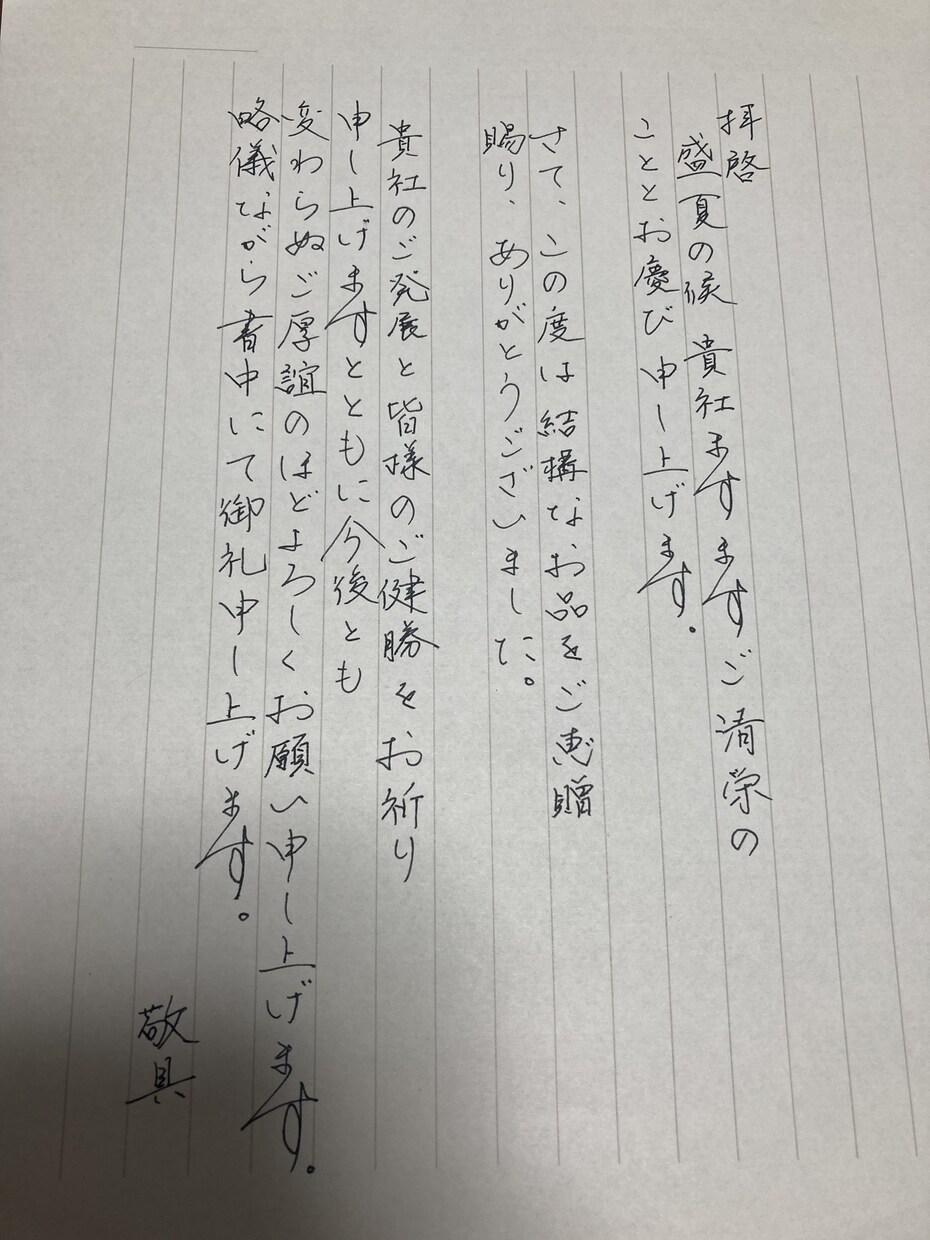 拝啓
盛夏の候 貴社ますますご清栄の
こととお慶び申し上げます。
さて、この度は結構なお品をご恵贈
賜り、ありがとうございました。
貴社のご発展と皆様のご健勝をお祈り
申し上げますとともに今後とも
変わらぬご厚誼のほどよろしくお願い申し上げます。
略儀ながら書中にて御礼申し上げます。
敬具